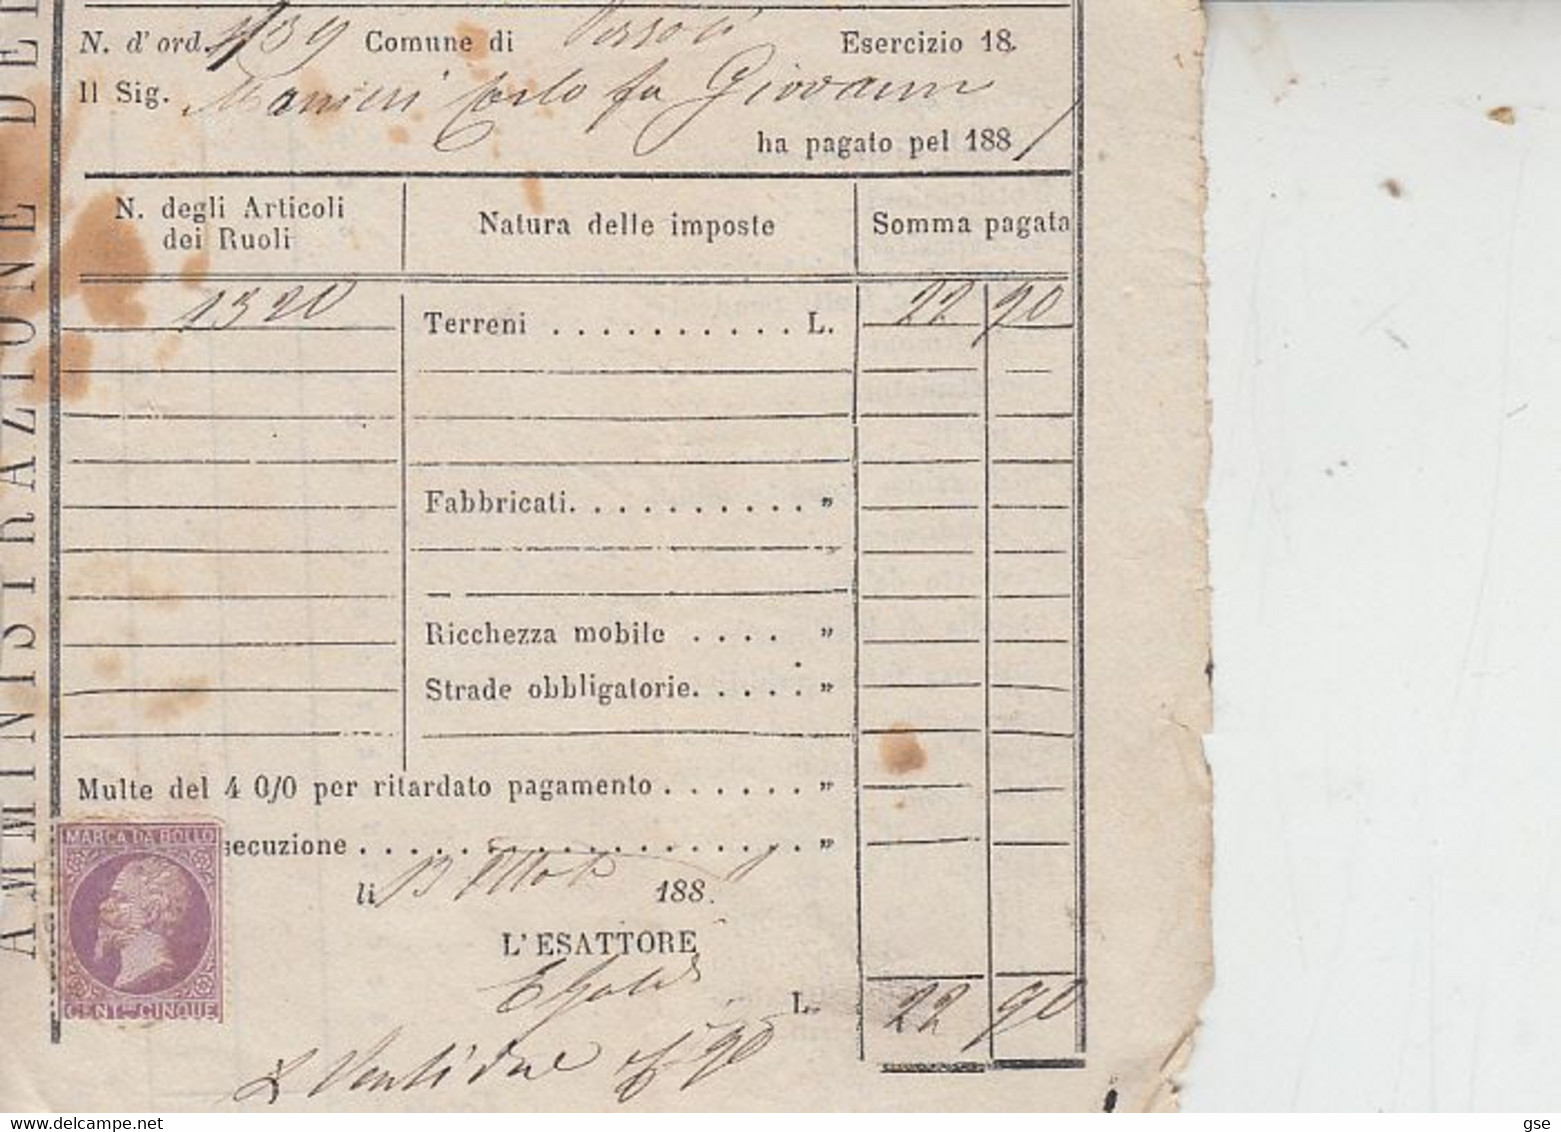 AMMINISTRAZIONE DE
N. d'ord. 1139 Comune di Esercizio 18.
Il Sig. Manieri Carlo fu Giovanni
ha pagato pel 1881
N. degli Articoli dei Ruoli Natura delle imposte Somma pagata
1320 Terreni . . . . . . . . . . . L. 22 90
Fabbricati. . . . . . . . . . . "
Ricchezza mobile . . . . "
Strade obbligatorie. . . . . "
Multe del 4 0/0 per ritardato pagamento . . . . . . "
secuzione . . . . . . . . . . . . . . . . . . . "
li 13 188
L'ESATTORE
L. 22 90
L Ventidue e/ 90
MARCA DA BOLLO
CENT.MI CINQUE
delcampe.net
gse